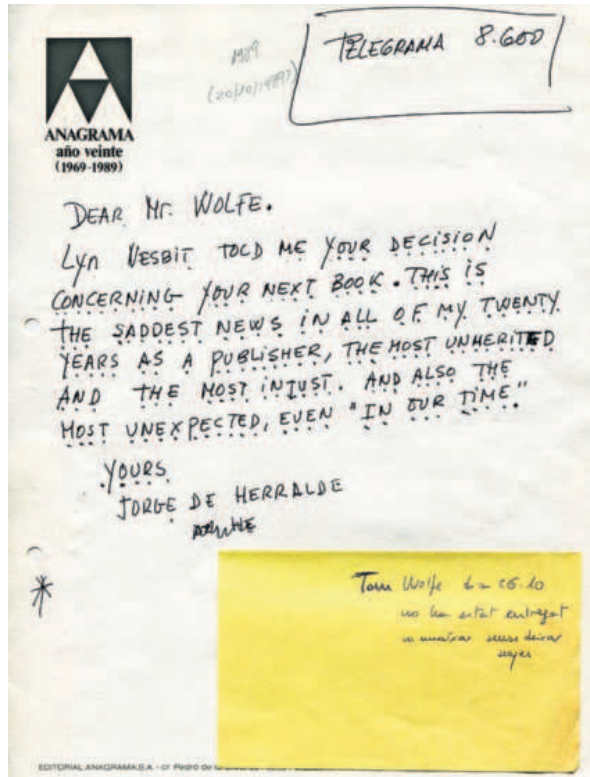 TELEGRAMA 8.600
1989
(20/10/1989?)
ANAGRAMA
año veinte
(1969-1989)
DEAR Mr. WOLFE.
Lyn NESBIT TOLD ME YOUR DECISION
CONCERNING YOUR NEXT BOOK. THIS IS
THE SADDEST NEWS IN ALL OF MY TWENTY
YEARS AS A PUBLISHER, THE MOST UNMERITED
AND THE MOST INJUST. AND ALSO THE
MOST UNEXPECTED, EVEN "IN OUR TIME"
YOURS
JORGE DE HERRALDE
Tom Wolfe 26.10
no ha estat entregat
EDITORIAL ANAGRAMA S.A. - c/ Pedro de la